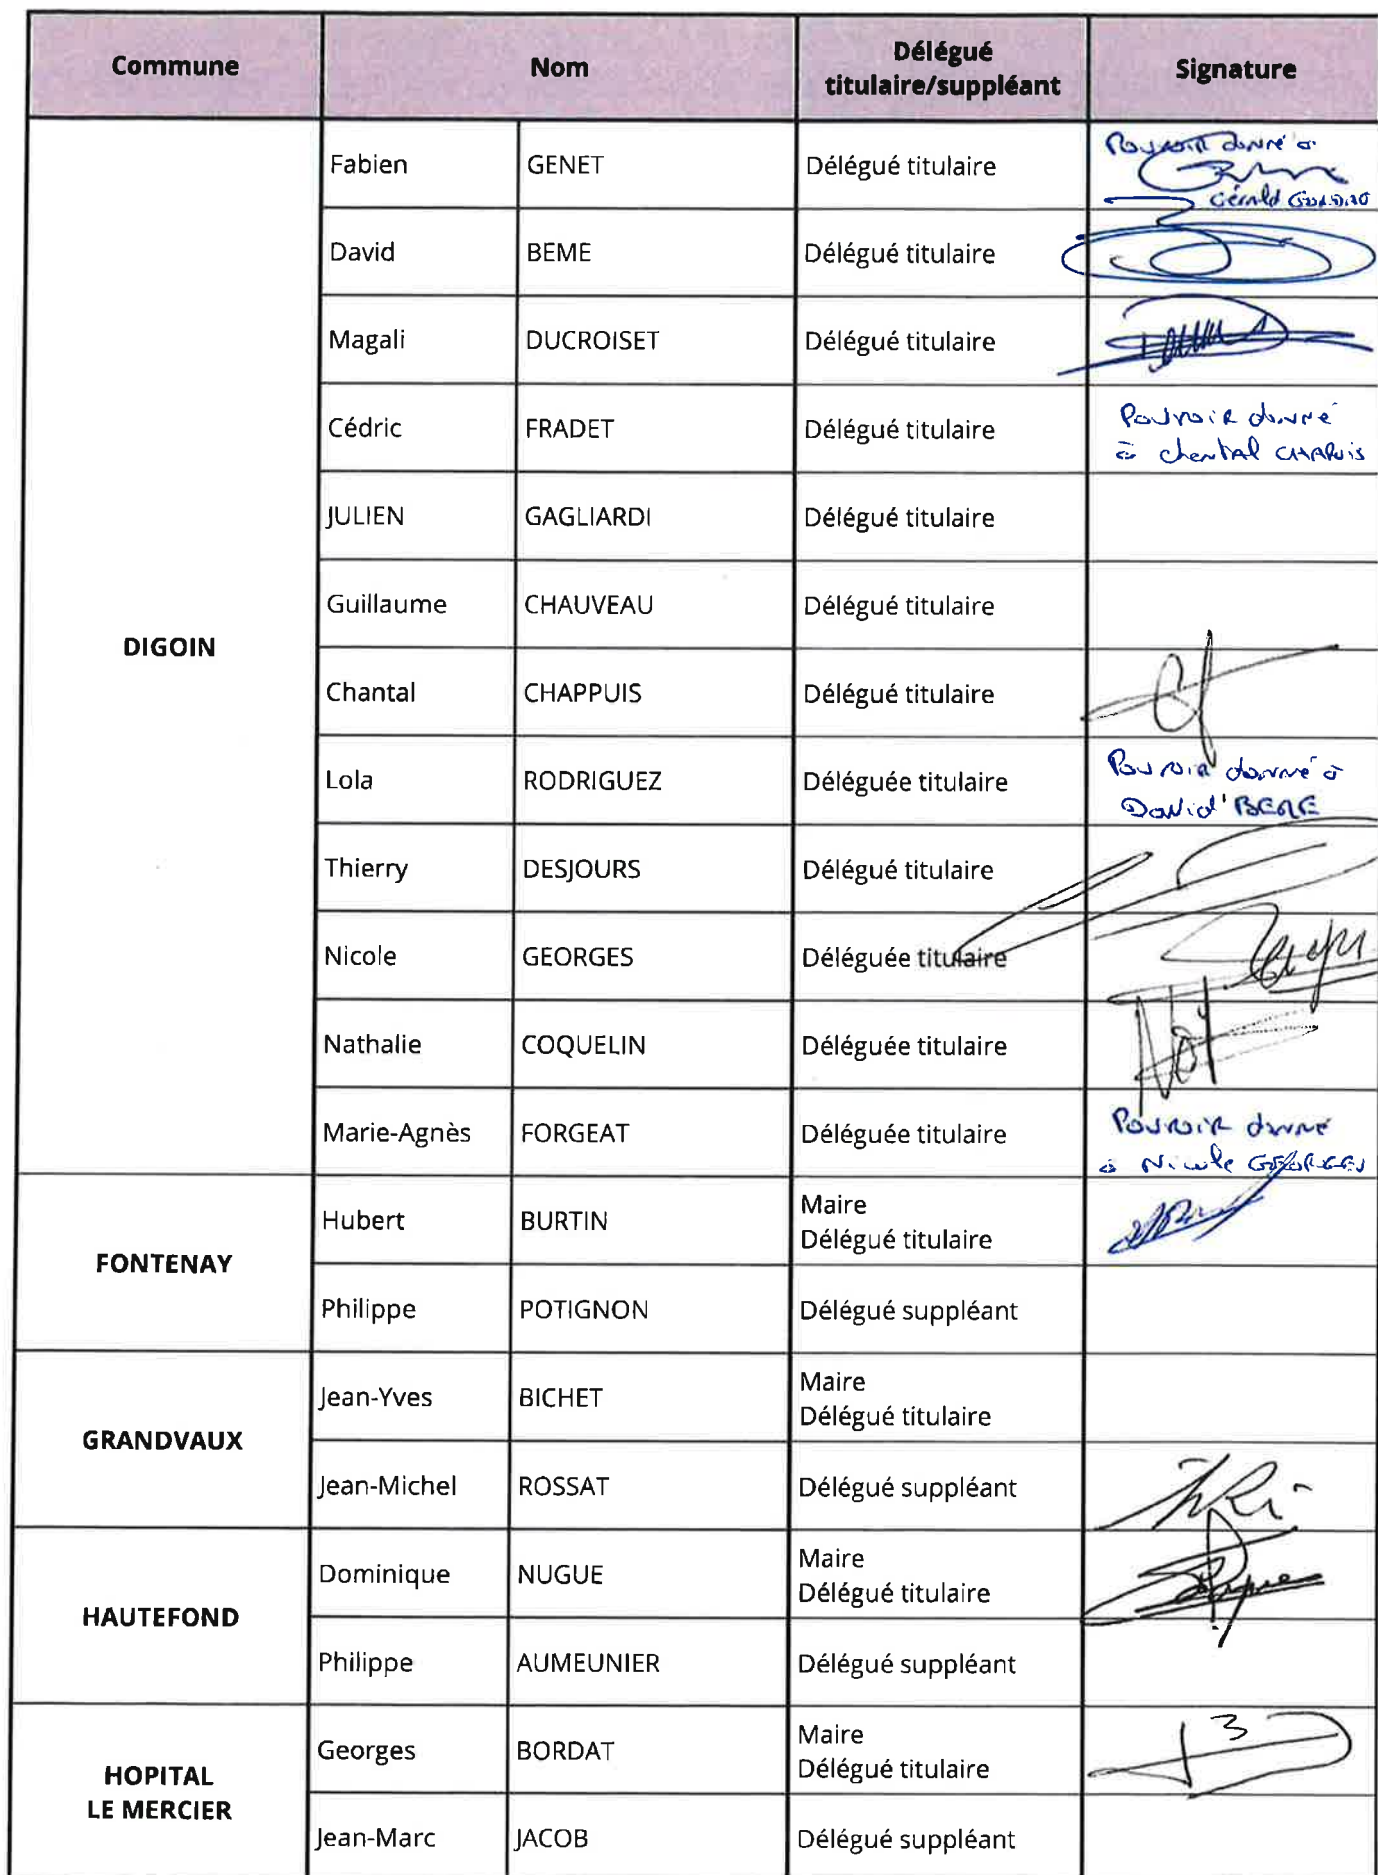 Commune Nom Délégué titulaire/suppléant Signature
DIGOIN
Fabien GENET Délégué titulaire Pouvoir donné à
Gérald
David BEME Délégué titulaire
Magali DUCROISET Délégué titulaire
Cédric FRADET Délégué titulaire Pouvoir donné
à Chantal CHAPUIS
JULIEN GAGLIARDI Délégué titulaire
Guillaume CHAUVEAU Délégué titulaire
Chantal CHAPPUIS Délégué titulaire
Lola RODRIGUEZ Déléguée titulaire Pouvoir donné à
David BEME
Thierry DESJOURS Délégué titulaire
Nicole GEORGES Déléguée titulaire
Nathalie COQUELIN Déléguée titulaire
Marie-Agnès FORGEAT Déléguée titulaire Pouvoir donné
à Nicole GEORGES
FONTENAY
Hubert BURTIN Maire
Délégué titulaire
Philippe POTIGNON Délégué suppléant
GRANDVAUX
Jean-Yves BICHET Maire
Délégué titulaire
Jean-Michel ROSSAT Délégué suppléant
HAUTEFOND
Dominique NUGUE Maire
Délégué titulaire
Philippe AUMEUNIER Délégué suppléant
HOPITAL
LE MERCIER
Georges BORDAT Maire
Délégué titulaire
Jean-Marc JACOB Délégué suppléant